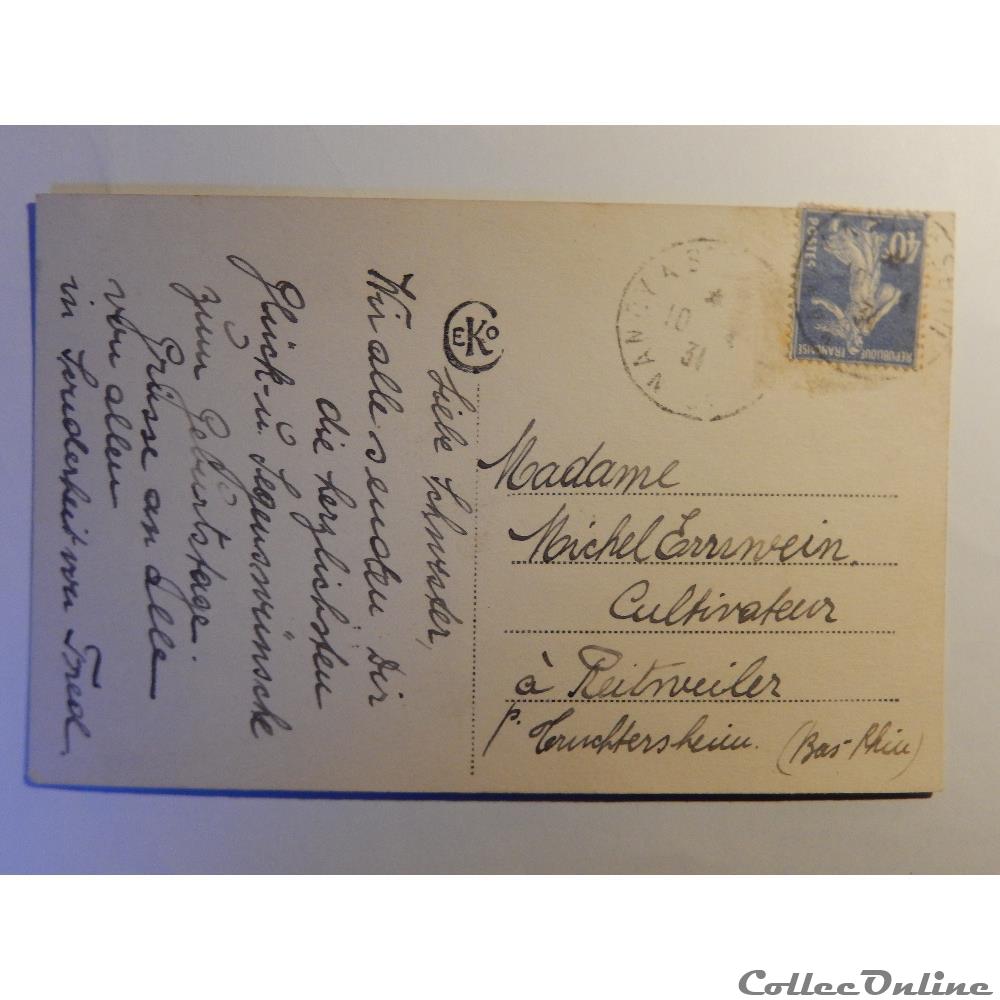 Liebe Schwester,
Wir alle senden Dir
die herzlichsten
Glück- u. Segenswünsche
zum Geburtstage.
Grüsse an Alle
von allen
in Sonderheit von Fred.
EKO
40c
POSTES
REPUBLIQUE FRANÇAISE
10
31
Madame
Michel Errwein.
Cultivateur
à Reitweiler
p. Truchtersheim. (Bas-Rhin)
CollecOnline